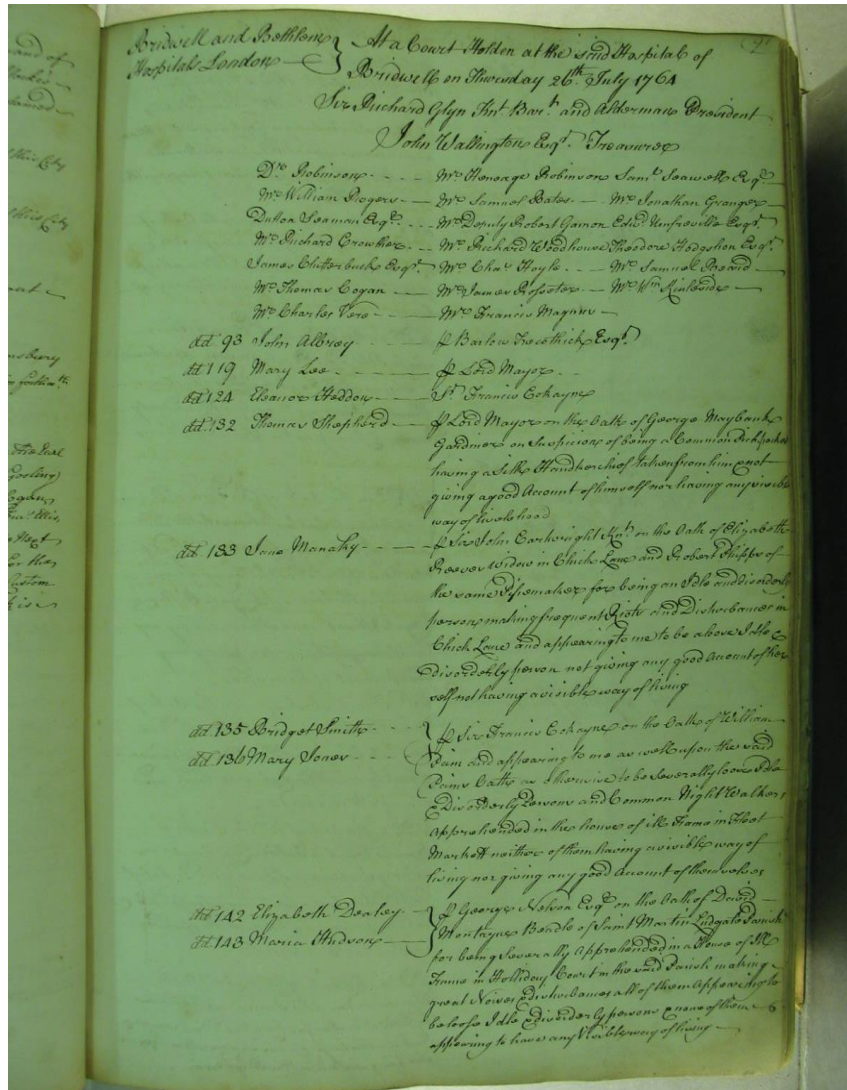 Bridwell and Bethlem } At a Court Holden at the said Hospital of
Hospitals London } Bridwell on Thursday 26th. July 1764
Sir Richard Glyn Knt. Bart. and Alderman President
John Wallington Esqr. Treasurer
Dr. Robinson - - - - Mr. Heneage Robinson Saml. Seawell Esqr.
Mr. William Rogers - Mr. Samuel Bates - Mr. Jonathan Granger
Dutton Seaman Esqr. - - - Mr. Deputy Robert Gamon Edwd. Umfreville Esqr.
Mr. Richard Crowther - - Mr. Richard Woodhouse Theodore Hodgshon Esqr.
James Clutterbuck Esqr. Mr. Chas. Hoyle - - - Mr. Samuel Beard
Mr. Thomas Cogan - Mr. James - Mr. Wm.
Mr. Charles Vere - Mr. Francis Magnus
dd. 93 John Albrey - - - - p Barlow Trecothick Esqr.
dd. 119 Mary Lee - - - - p Lord Mayor - -
dd. 124 Eleanor Heddon - Sr. Francis Cokayne
dd. 132 Thomas Shepherd - p Lord Mayor on the Oath of George Maybank
Gardiner on Suspicion of being a Common Pickpocket
having a Silk Handkerchief taken from him & not
giving a good Account of himself nor having any visible
way of livelehood
dd. 133 Jane Manaky - - - p Sir John Cartwright Knt. on the Oath of Elizabeth
Reeves Widow in Chick Lane and Robert Phipps of
the same Pipemaker for being an Idle and disorderly
person making frequent Riots and Disturbances in
Chick Lane and appearing to me to be a loose Idle &
disorderly person not giving any good Account of her
self not having a visible way of living
dd. 135 Bridget Smith - - - } p Sir Francis Cokayne on the Oath of William
dd. 136 Mary Jones - - - } Pain and appearing to me as well upon the said
Pains Oath as otherwise to be severally loose Idle
& Disorderly Persons and Common Night Walkers
apprehended in the house of ill Frame in Fleet
Markett neither of them having a visible way of
living nor giving any good Account of themselves
dd. 142 Elizabeth Dealey - } p George Nelson Esqr. on the Oath of David
dd. 143 Maria Hudson - } Montayne Beadle of Saint Martin Ludgate Parish
for being Severally Apprehended in a House of Ill
Frame in Holliday Court in the said Parish making
great Noises & disturbances all of them Appearing to
be loose Idle & disorderly persons & none of them
appearing to have any Visible way of living